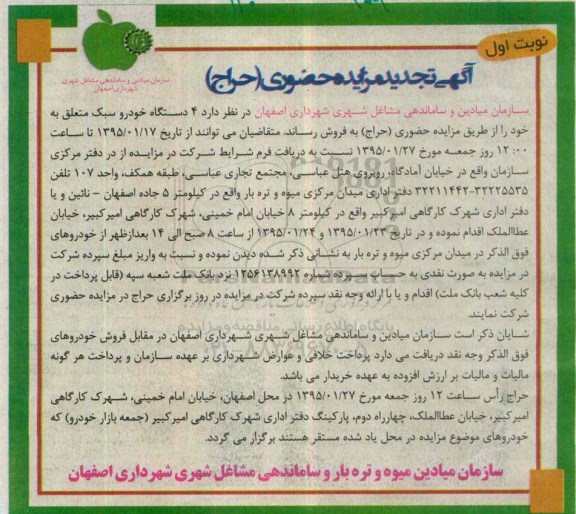 نوبت اول
سازمان میادین و ساماندهی مشاغل شهری
شهرداری اصفهان
آگهی تجدید مزایده حضوری (حراج)
سازمان میادین و ساماندهی مشاغل شهری شهرداری اصفهان در نظر دارد ۴ دستگاه خودرو سبک متعلق به
خود را از طریق مزایده حضوری (حراج) به فروش رساند. متقاضیان می توانند از تاریخ ۱۳۹۵/۰۱/۱۷ تا ساعت
۱۲:۰۰ روز جمعه مورخ ۱۳۹۵/۰۱/۲۷ نسبت به دریافت فرم شرایط شرکت در مزایده از در دفتر مرکزی
سازمان واقع در خیابان آمادگاه، روبروی هتل عباسی، مجتمع تجاری عباسی، طبقه همکف، واحد ۱۰۷ تلفن
۳۲۲۲۵۵۳۵-۳۲۲۱۱۴۴۲ دفتر اداری میدان مرکزی میوه و تره بار واقع در کیلومتر ۵ جاده اصفهان - نائین و یا
دفتر اداری شهرک کارگاهی امیرکبیر واقع در کیلومتر ۸ خیابان امام خمینی، شهرک کارگاهی امیرکبیر، خیابان
عطاالملک اقدام نموده و در تاریخ ۱۳۹۵/۰۱/۲۳ و ۱۳۹۵/۰۱/۲۴ از ساعت ۸ صبح الی ۱۴ بعدازظهر از خودروهای
فوق الذکر در میدان مرکزی میوه و تره بار به نشانی ذکر شده دیدن نموده و نسبت به واریز مبلغ سپرده شرکت
در مزایده به صورت نقدی به حساب سپرده شماره ۱۲۵۶۱۳۸۹۹۲ نزد بانک ملت شعبه سپه (قابل پرداخت در
کلیه شعب بانک ملت) اقدام و یا با ارائه وجه نقد سپرده شرکت در مزایده در روز برگزاری حراج در مزایده حضوری
شرکت نمایند.
شایان ذکر است سازمان میادین و ساماندهی مشاغل شهری شهرداری اصفهان در مقابل فروش خودروهای
فوق الذکر وجه نقد دریافت می دارد پرداخت خلافی و عوارض شهرداری بر عهده سازمان و پرداخت هر گونه
مالیات و مالیات بر ارزش افزوده به عهده خریدار می باشد.
حراج رأس ساعت ۱۲ روز جمعه مورخ ۱۳۹۵/۰۱/۲۷ در محل اصفهان، خیابان امام خمینی، شهرک کارگاهی
امیرکبیر، خیابان عطاالملک، چهارراه دوم، پارکینگ دفتر اداری شهرک کارگاهی امیرکبیر (جمعه بازار خودرو) که
خودروهای موضوع مزایده در محل یاد شده مستقر هستند برگزار می گردد.
سازمان میادین میوه و تره بار و ساماندهی مشاغل شهری شهرداری اصفهان